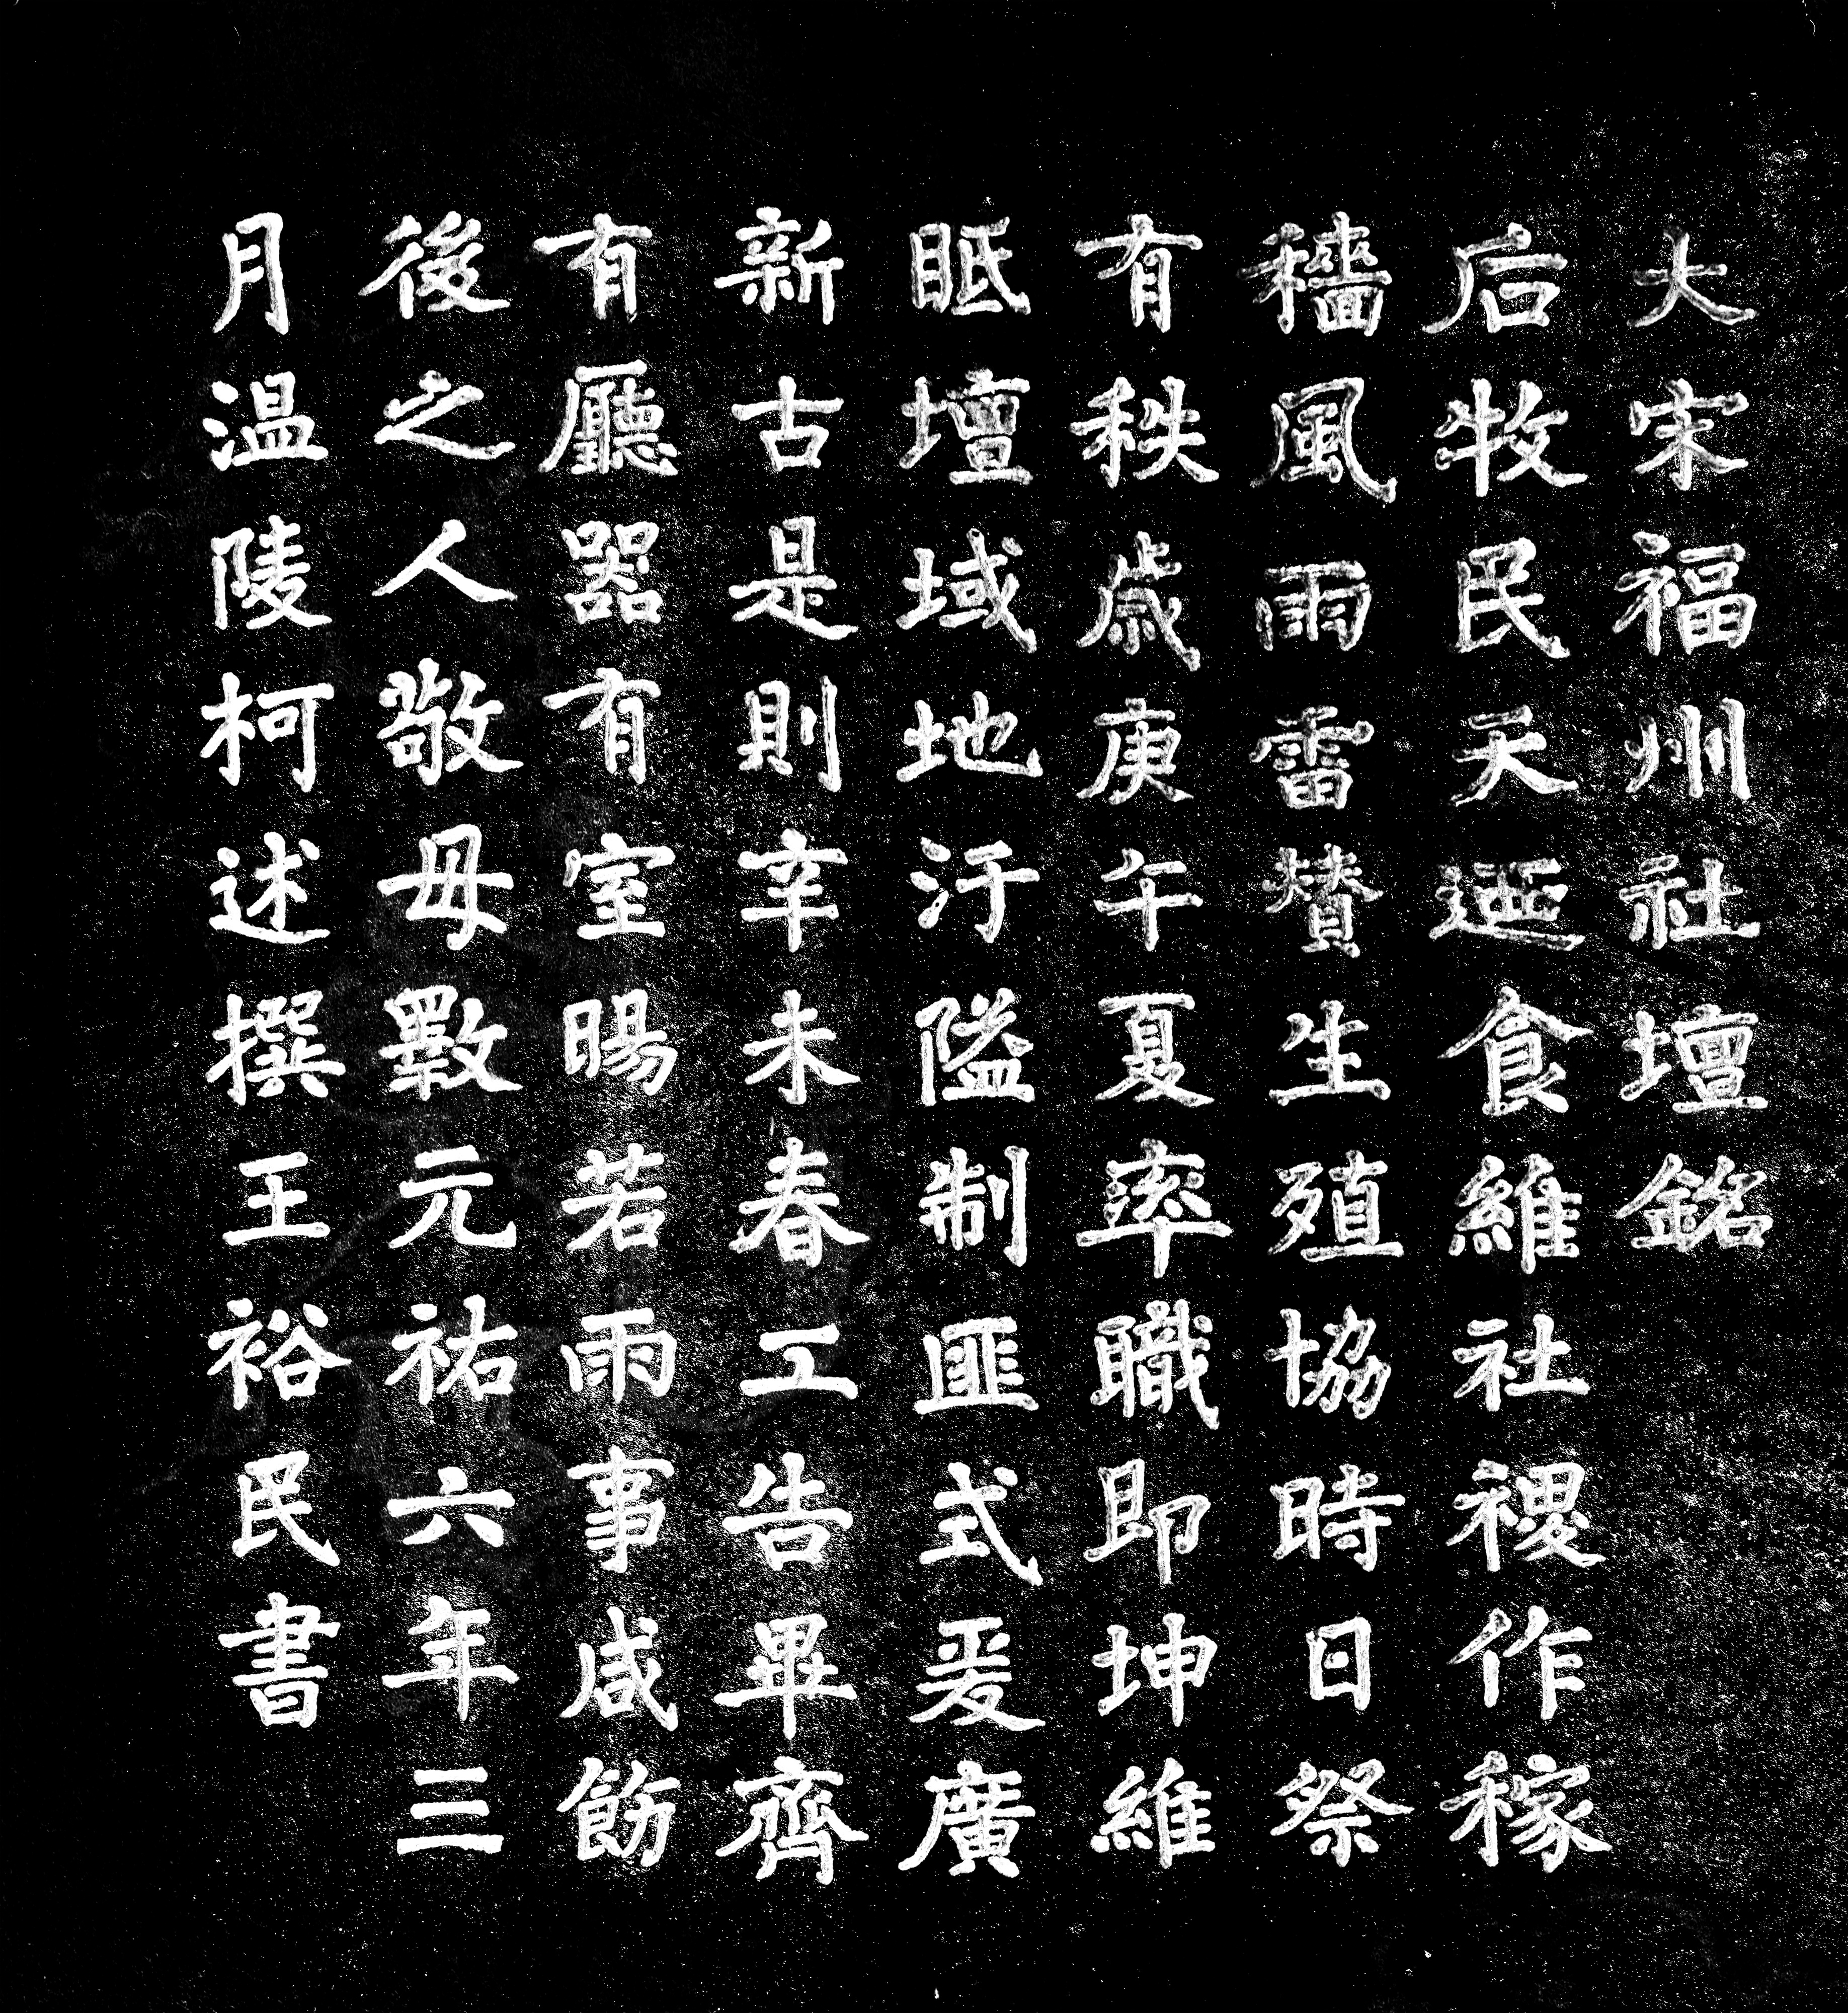 大宋福州社壇銘
后牧民天迺食維社稷作稼
穡風雨雷賛生殖協時日祭
有秩歲庚午夏率職即坤維
眡壇域地汙隘制匪式爰廣
新古是則辛未春工告畢齊
有廳器有室暘若雨事咸飭
後之人敬毋斁元祐六年三
月温陵柯述撰王裕民書